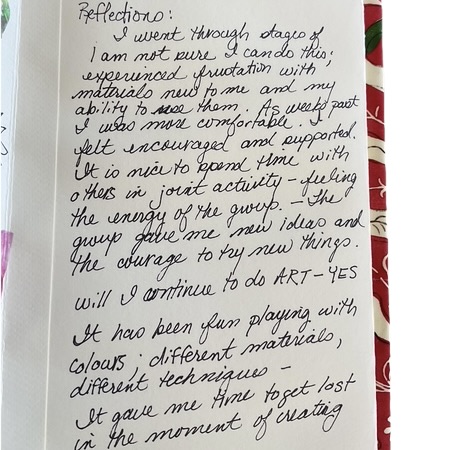 Reflections:
I went through stages of
I am not sure I can do this;
experienced frustation with
materials new to me and my
ability to use them. As weeks past
I was more comfortable. I
felt encouraged and supported.
It is nice to spend time with
others in joint activity - feeling
the energy of the group. - The
group gave me new ideas and
the courage to try new things.
will I continue to do ART - YES
It has been fun playing with
colours; different materials,
different techniques -
It gave me time to get lost
in the moment of creating